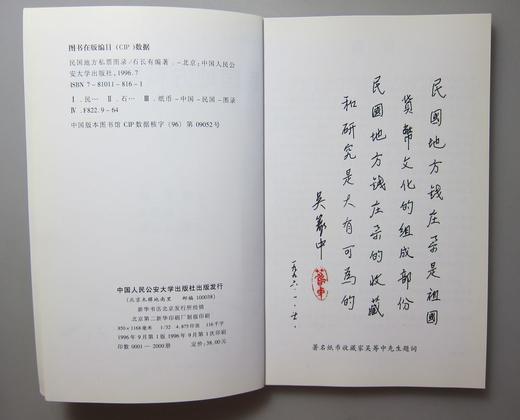 图书在版编目(CIP)数据
民国地方私票图录/石长有编著.-北京:中国人民公
安大学出版社,1996.7
ISBN 7-81011-816-1
Ⅰ.民… Ⅱ.石… Ⅲ.纸币-中国-民国-图录
Ⅳ.F822.9-64
中国版本图书馆CIP数据核字(96)第09052号
中国人民公安大学出版社出版发行
(北京木樨地南里 邮编 100038)
新华书店北京发行所经销
北京第二新华印刷厂制版印刷
850×1168毫米 1/32 4.875印张 116千字
1996年9月第1版 1996年9月第1次印刷
印数 0001-2000册 定价:38.00元
民國地方钱庄票是祖國
貨幣文化的组成部份
民國地方钱庄票的收藏
和研究是大有可為的
吴筹中
一九九六.一.
著名纸币收藏家吴筹中先生题词